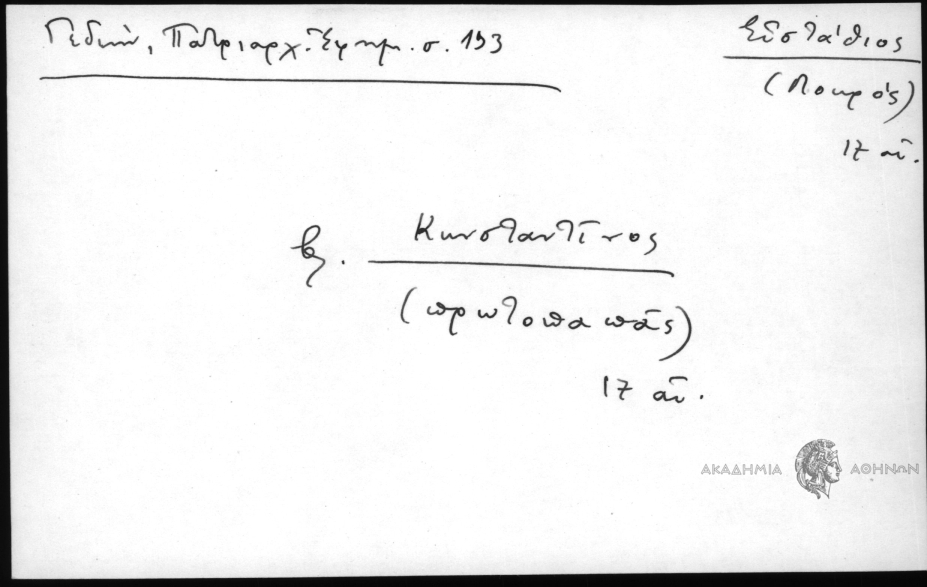 Γεδεών, Πατριαρχ. Ἐφημ. σ. 193
Εὐστάθιος
(Μοκρός)
17 αἰ.
βλ. Κωνσταντῖνος
(πρωτοπαπᾶς)
17 αἰ.
ΑΚΑΔΗΜΙΑ ΑΘΗΝΩΝ